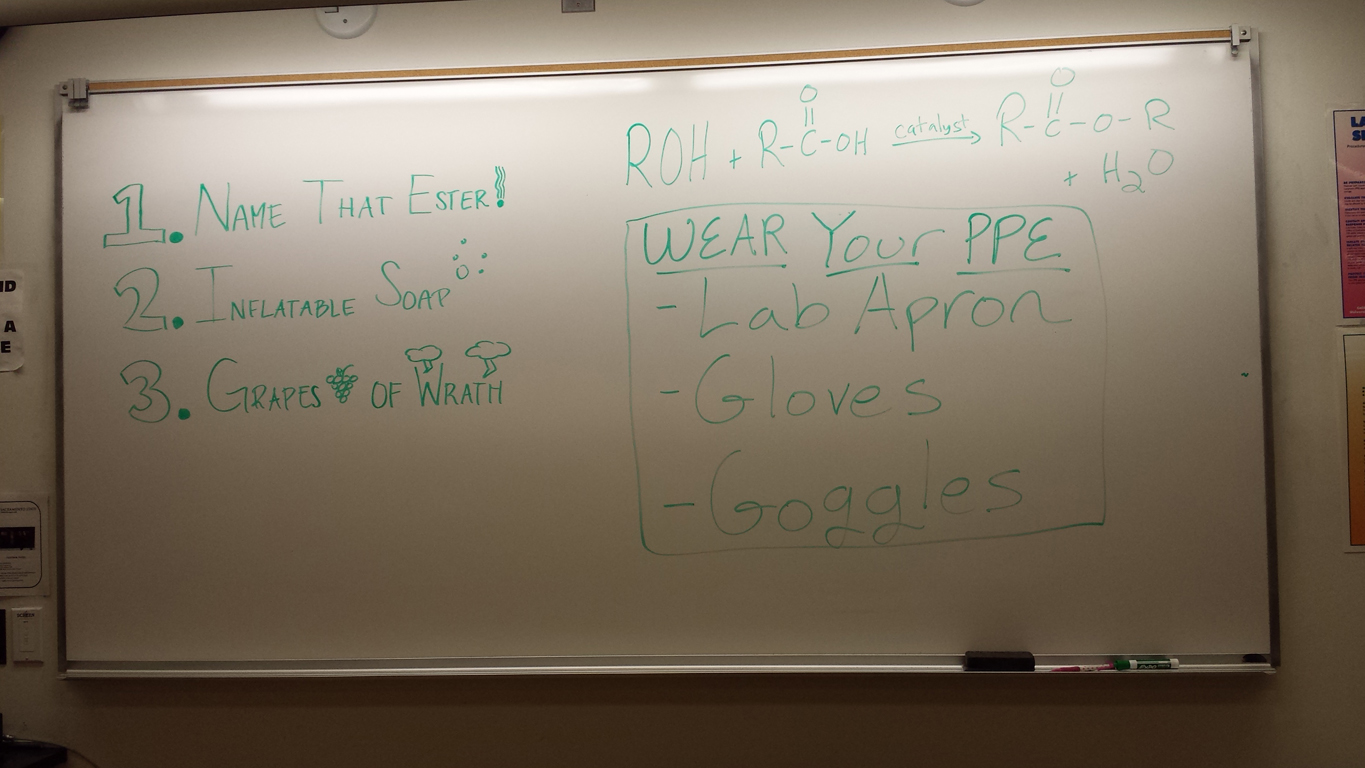 1. NAME THAT ESTER!
2. INFLATABLE SOAP
3. GRAPES OF WRATH
O
ROH + R-C-OH catalyst R-C-O-R
O
+ H2O
WEAR Your PPE
- Lab Apron
- Gloves
- Goggles
ND
A
E